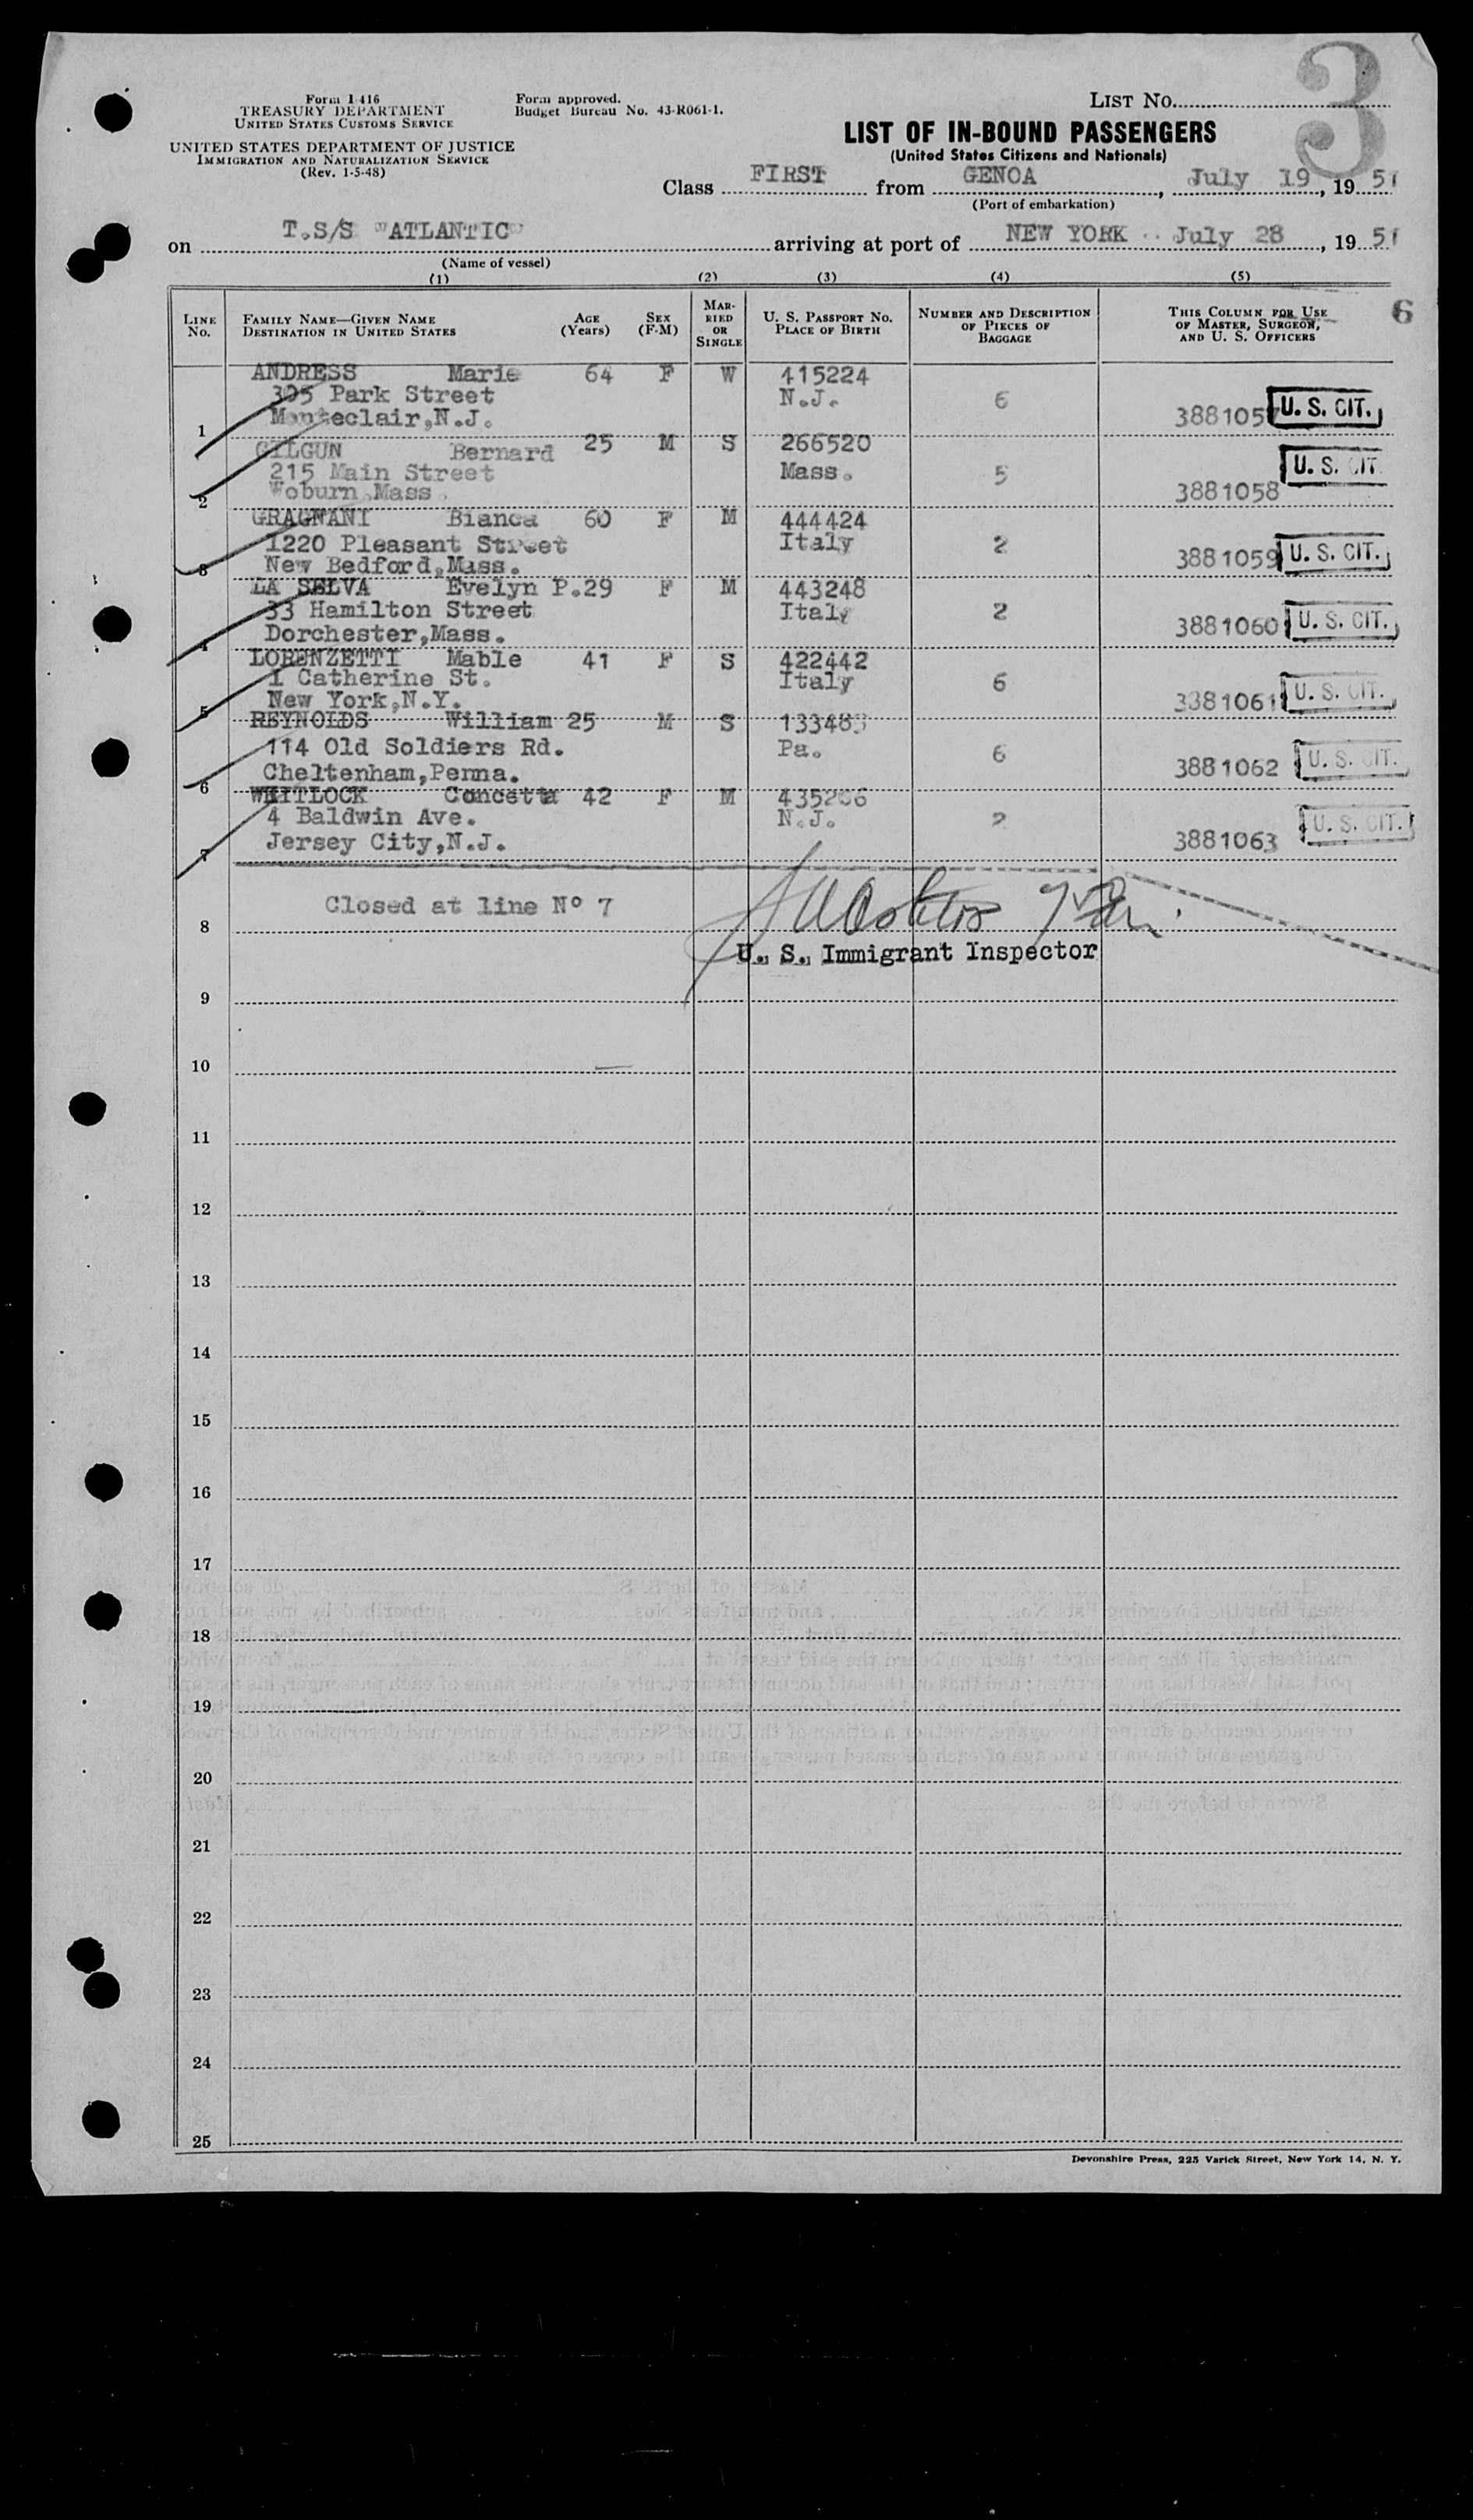 3
Form I 416
TREASURY DEPARTMENT
UNITED STATES CUSTOMS SERVICE
UNITED STATES DEPARTMENT OF JUSTICE
IMMIGRATION AND NATURALIZATION SERVICE
(Rev. 1-5-48)
Form approved.
Budget Bureau No. 43-R061-1.
LIST NO.
LIST OF IN-BOUND PASSENGERS
(United States Citizens and Nationals)
Class FIRST from GENOA, July 19, 1951
(Port of embarkation)
on T.S/S "ATLANTIC" arriving at port of NEW YORK July 28, 1951
(Name of vessel)
(1) (2) (3) (4) (5)
LINE No. FAMILY NAME—GIVEN NAME DESTINATION IN UNITED STATES AGE (Years) SEX (F-M) MARRIED OR SINGLE U. S. PASSPORT NO. PLACE OF BIRTH NUMBER AND DESCRIPTION OF PIECES OF BAGGAGE THIS COLUMN FOR USE OF MASTER, SURGEON, AND U. S. OFFICERS 6
ANDRESS Marie 64 F W 415224
305 Park Street N.J. 6
1 Monteclair,N.J. 3881057 U. S. CIT.
GILGUN Bernard 25 M S 266520
215 Main Street Mass. 5 U. S. CIT.
2 Woburn,Mass. 3881058
GRAGNANI Bianca 60 F M 444424
1220 Pleasant Street Italy 2
3 New Bedford,Mass. 3881059 U. S. CIT.
LA SELVA Evelyn P. 29 F M 443248
33 Hamilton Street Italy 2
4 Dorchester,Mass. 3881060 U. S. CIT.
LORENZETTI Mable 41 F S 422442
1 Catherine St. Italy 6
5 New York,N.Y. 3881061 U. S. CIT.
REYNOLDS William 25 M S
114 Old Soldiers Rd. Pa. 6
6 Cheltenham,Penna. 3881062 U. S. CIT.
WHITLOCK Concetta 42 F M 435206
4 Baldwin Ave. N.J. 2
7 Jersey City,N.J. 3881063 U. S. CIT.
8 Closed at line Nº 7
U. S. Immigrant Inspector
9
10
11
12
13
14
15
16
17
18
19
20
21
22
23
24
25
Devonshire Press, 225 Varick Street, New York 14, N. Y.